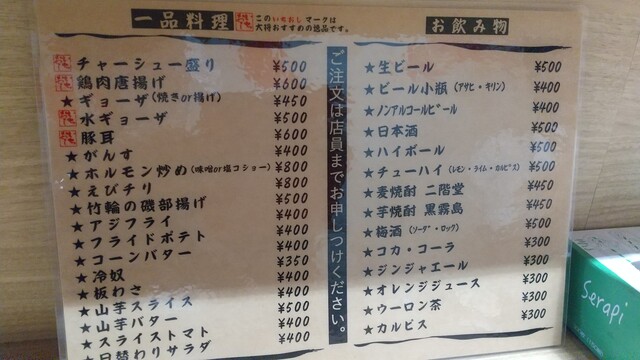 一品料理
この いちおし マークは
大将おすすめの逸品です。
チャーシュー盛り ¥500
鶏肉唐揚げ ¥600
★ ギョーザ(焼きor揚げ) ¥450
水ギョーザ ¥500
豚耳 ¥600
★ がんす ¥400
★ ホルモン炒め(味噌or塩コショー) ¥800
★ えびチリ ¥800
★ 竹輪の磯部揚げ ¥500
★ アジフライ ¥400
★ フライドポテト ¥400
★ コーンバター ¥350
★ 冷奴 ¥400
★ 板わさ ¥400
★ 山芋スライス ¥500
★ 山芋バター ¥400
★ スライストマト ¥400
★ 日替わりサラダ ¥400
ご注文は店員までお申しつけください。
お飲み物
★ 生ビール ¥500
★ ビール小瓶(アサヒ・キリン) ¥400
★ ノンアルコールビール ¥400
★ 日本酒 ¥500
★ ハイボール ¥500
★ チューハイ(レモン・ライム・カルピス) ¥500
★ 麦焼酎 二階堂 ¥450
★ 芋焼酎 黒霧島 ¥450
★ 梅酒(ソーダ・ロック) ¥500
★ コカ・コーラ ¥300
★ ジンジャエール ¥300
★ オレンジジュース ¥300
★ ウーロン茶 ¥300
★ カルピス ¥300
Serapi